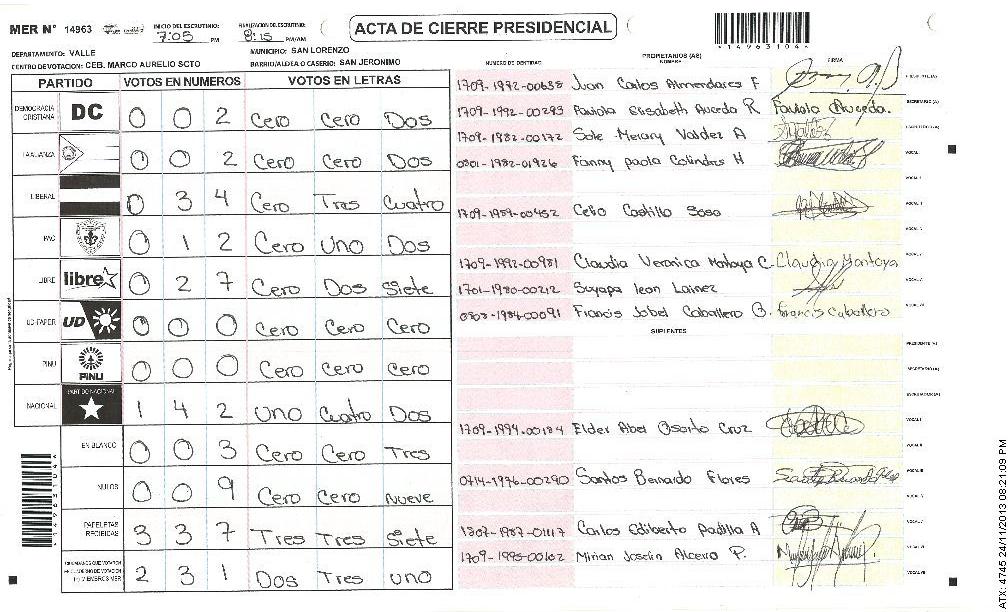 MER N° 14963
INICIO DEL ESCRUTINIO: 7:05 PM
FINALIZACION DEL ESCRUTINIO: 8:15 PM/AM
ACTA DE CIERRE PRESIDENCIAL
*14963104*
DEPARTAMENTO: VALLE
MUNICIPIO: SAN LORENZO
CENTRO DE VOTACION: CEB. MARCO AURELIO SOTO
BARRIO/ALDEA O CASERIO: SAN JERONIMO
PARTIDO VOTOS EN NUMEROS VOTOS EN LETRAS
DEMOCRACIA CRISTIANA DC 0 0 2 Cero Cero Dos
LA ALIANZA 0 0 2 Cero Cero Dos
LIBERAL 0 3 4 Cero Tres Cuatro
PAC 0 1 2 Cero Uno Dos
LIBRE libre 0 2 7 Cero Dos Siete
UD-FAPER UD 0 0 0 Cero Cero Cero
PINU PINU 0 0 0 Cero Cero Cero
NACIONAL PARTIDO NACIONAL 1 4 2 Uno Cuatro Dos
EN BLANCO 0 0 3 Cero Cero Tres
NULOS 0 0 9 Cero Cero Nueve
PAPELETAS RECIBIDAS 3 3 7 Tres Tres Siete
2 3 1 Dos Tres Uno
NUMERO DE IDENTIDAD
PROPIETARIOS (AS)
NOMBRE
FIRMA
1709-1992-00658 Juan Carlos Almendares F
1709-1992-00293 Paviola Elisabeth Auceda R Paviola Auceda. SECRETARIO (A)
1709-1982-00172 Sole Merary Valdez A
0801-1982-01926 Fanny paola Colindres H
1709-1989-00452 Celio Castillo Sosa
1709-1992-00981 Claudia Veronica Montoya C. Claudia Montoya
1701-1980-00212 Suyapa leon Lainez
Francis Isbel Caballero B. Francis Caballero
SUPLENTES
1709-1994-00184 Elder Abel Osorto Cruz
0714-1976-00290 Santos Bernardo Flores
1807-1987-01117 Carlos Edilberto Padilla A
1709-1995-00102 Mirian Joselin Alcerro P.
ATX: 4745 24/11/2013 08:21:09 PM